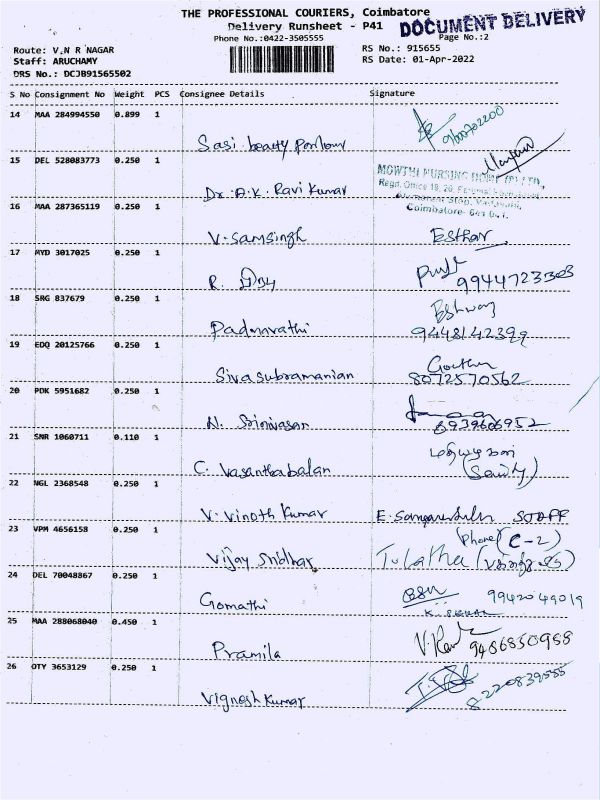 THE PROFESSIONAL COURIERS, Coimbatore
Delivery Runsheet - P41
DOCUMENT DELIVERY
Phone No.:0422-3505555
Page No.:2
Route: V.N R NAGAR
RS No.: 915655
Staff: ARUCHAMY
RS Date: 01-Apr-2022
DRS No.: DCJB91565502
S No Consignment No Weight PCS Consignee Details Signature
14 MAA 284994550 0.899 1
Sasi beauty parlour 9600702200
15 DEL 528083773 0.250 1
MOWTHI NURSING HOME (P) LTD.,
Regd. Office 19, 20,
Dr. A.K. Ravi Kumar
Coimbatore- 641 041.
16 MAA 287365119 0.250 1
V. Samsingh Esther
17 MYD 3017025 0.250 1
R. 9944723303
18 SRG 837679 0.250 1
Eshwary
Padmavathi 9448142399
19 EDQ 20125766 0.250 1
Sivasubramanian 8072570562
20 PDK 5951682 0.250 1
N. Srinivasan 8939606952
21 SNR 1060711 0.110 1
C. Vasanthabalan
22 NGL 2368548 0.250 1
V. Vinoth Kumar
23 VPM 4656158 0.250 1
Phone (C-2)
Vijay Sridhar Tulatha
24 DEL 70048867 0.250 1
Gomathi 9942049019
25 MAA 288068040 0.450 1
Pramila 9486850988
26 OTY 3653129 0.250 1
Vignesh Kumar 8220839555